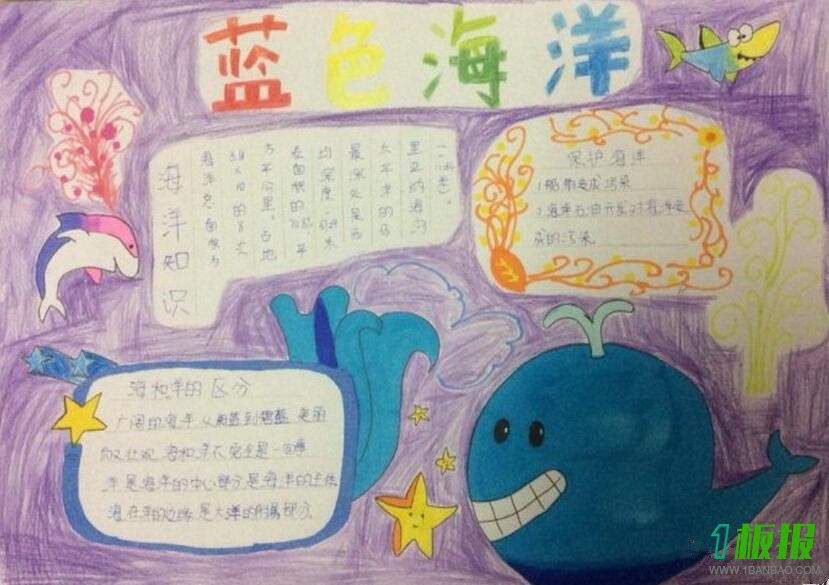 蓝色海洋
海洋知识
海洋总面积为
3.8×10的8次
方平公里。占地
表面积的70% 平
均深度
最深处是西
太平洋的马
里亚纳海沟
保护海洋
1船舶造成污染
2海洋石油开发对海洋造
成的污染
海和洋的区分
广阔的海洋从蔚蓝到碧蓝 美丽
而又壮观 海和洋不完全是一回事
洋是海洋的中心部分是海洋的主体
海在洋的边缘是大洋的附属部分
1板报
WWW.1BANBAO.COM